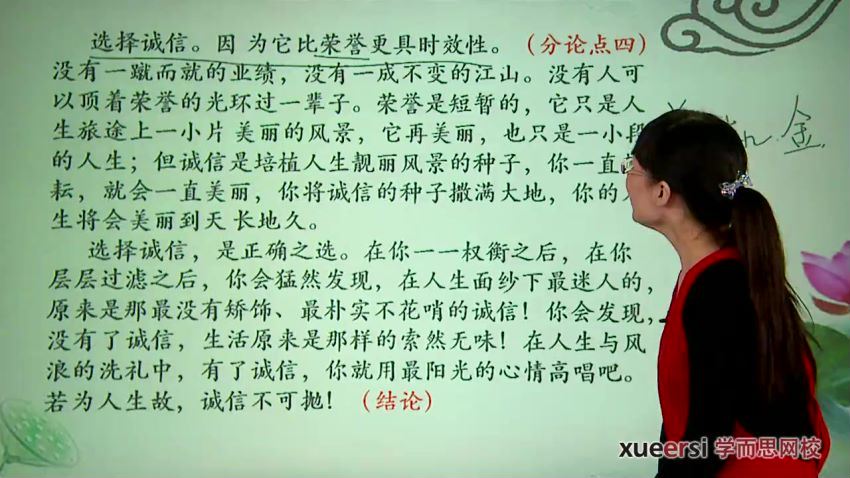 选择诚信。因为它比荣誉更具时效性。（分论点四）
没有一蹴而就的业绩，没有一成不变的江山。没有人可
以顶着荣誉的光环过一辈子。荣誉是短暂的，它只是人
生旅途上一小片美丽的风景，它再美丽，也只是一小段
的人生；但诚信是培植人生靓丽风景的种子，你一直
耘，就会一直美丽，你将诚信的种子撒满大地，你的人
生将会美丽到天长地久。
选择诚信，是正确之选。在你一一权衡之后，在你
层层过滤之后，你会猛然发现，在人生面纱下最迷人的，
原来是那最没有矫饰、最朴实不花哨的诚信！你会发现，
没有了诚信，生活原来是那样的索然无味！在人生与风
浪的洗礼中，有了诚信，你就用最阳光的心情高唱吧。
若为人生故，诚信不可抛！（结论）
金
xueersi 学而思网校